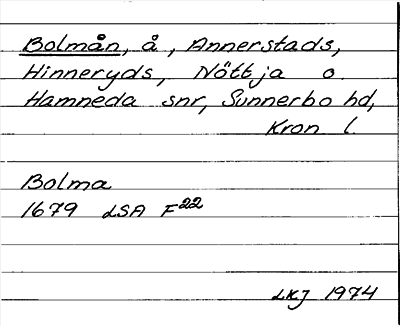 Bolmån, å, Annerstads,
Hinneryds, Nöttja o.
Hamneda snr, Sunnerbo hd,
Kron l.
Bolma
1679 LSA F22
LKJ 1974